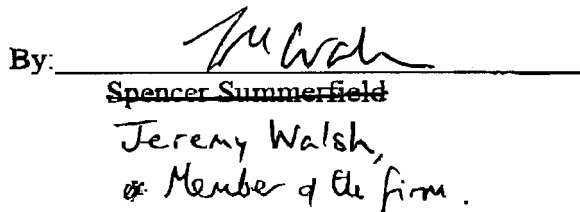 By:
Spencer Summerfield
Jeremy Walsh,
Member of the firm.